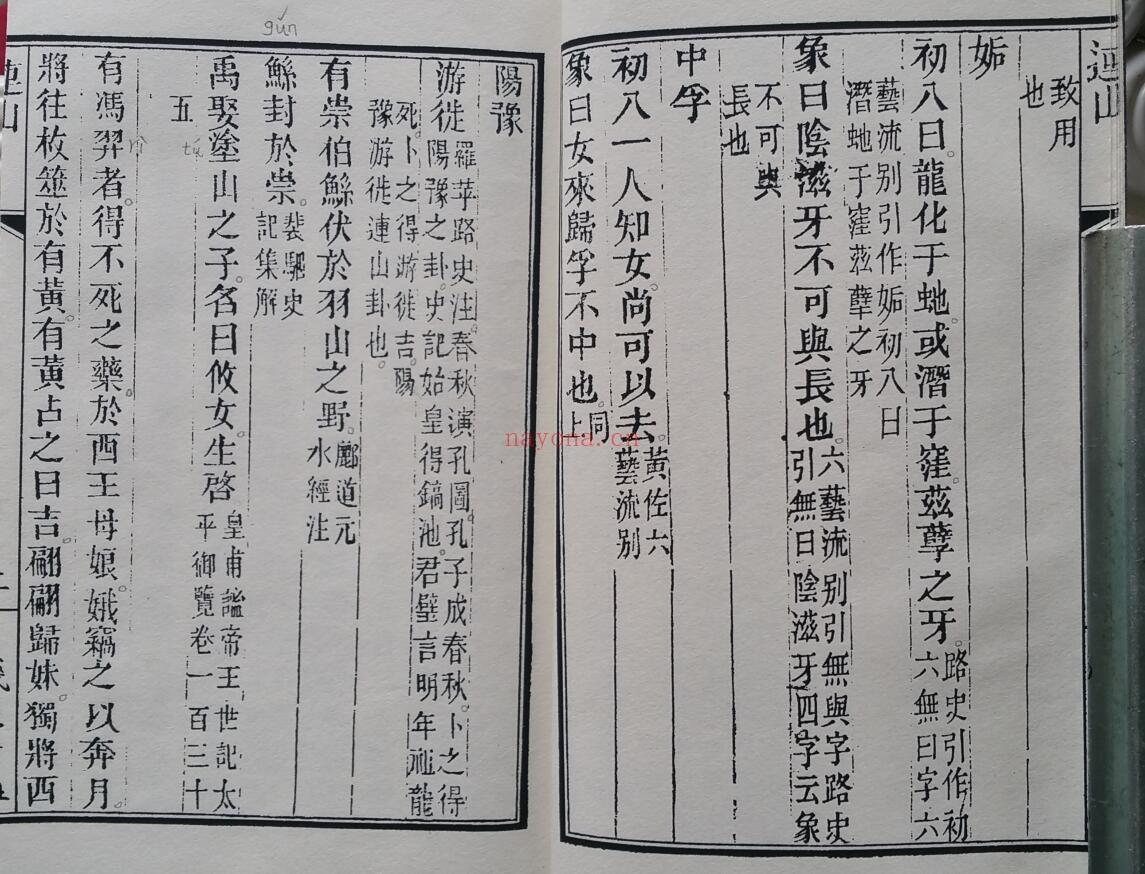 連山
致用
也
姤
初八曰龍化于虵或潛于窪茲孽之牙路史引作初六無曰字六
藝流别引作姤初八曰
潛虵于窪茲孽之牙
象曰陰滋牙不可與長也六藝流别引無與字路史引無日陰滋牙四字云象
不可與
長也
中孚
初八一人知女尚可以去黃佐六藝流别
象曰女來歸孚不中也同上
gǔn
陽豫
游徙羅苹路史注春秋演孔圖孔子成春秋卜之得陽豫之卦史記始皇得鎬池君璧言明年祖龍
死卜之得游徙吉陽
豫游徙連山卦也
有崇伯鯀伏於羽山之野酈道元水經注
鯀封於崇裴駰史記集解
禹娶塗山之子名曰攸女生啓皇甫謐帝王世記太平御覽卷一百三十
五
有馮羿者得不死之藥於西王母娘娥竊之以奔月
將往枚筮於有黃有黃占之曰吉翩翩歸妹獨將西
連山
nayona.cn